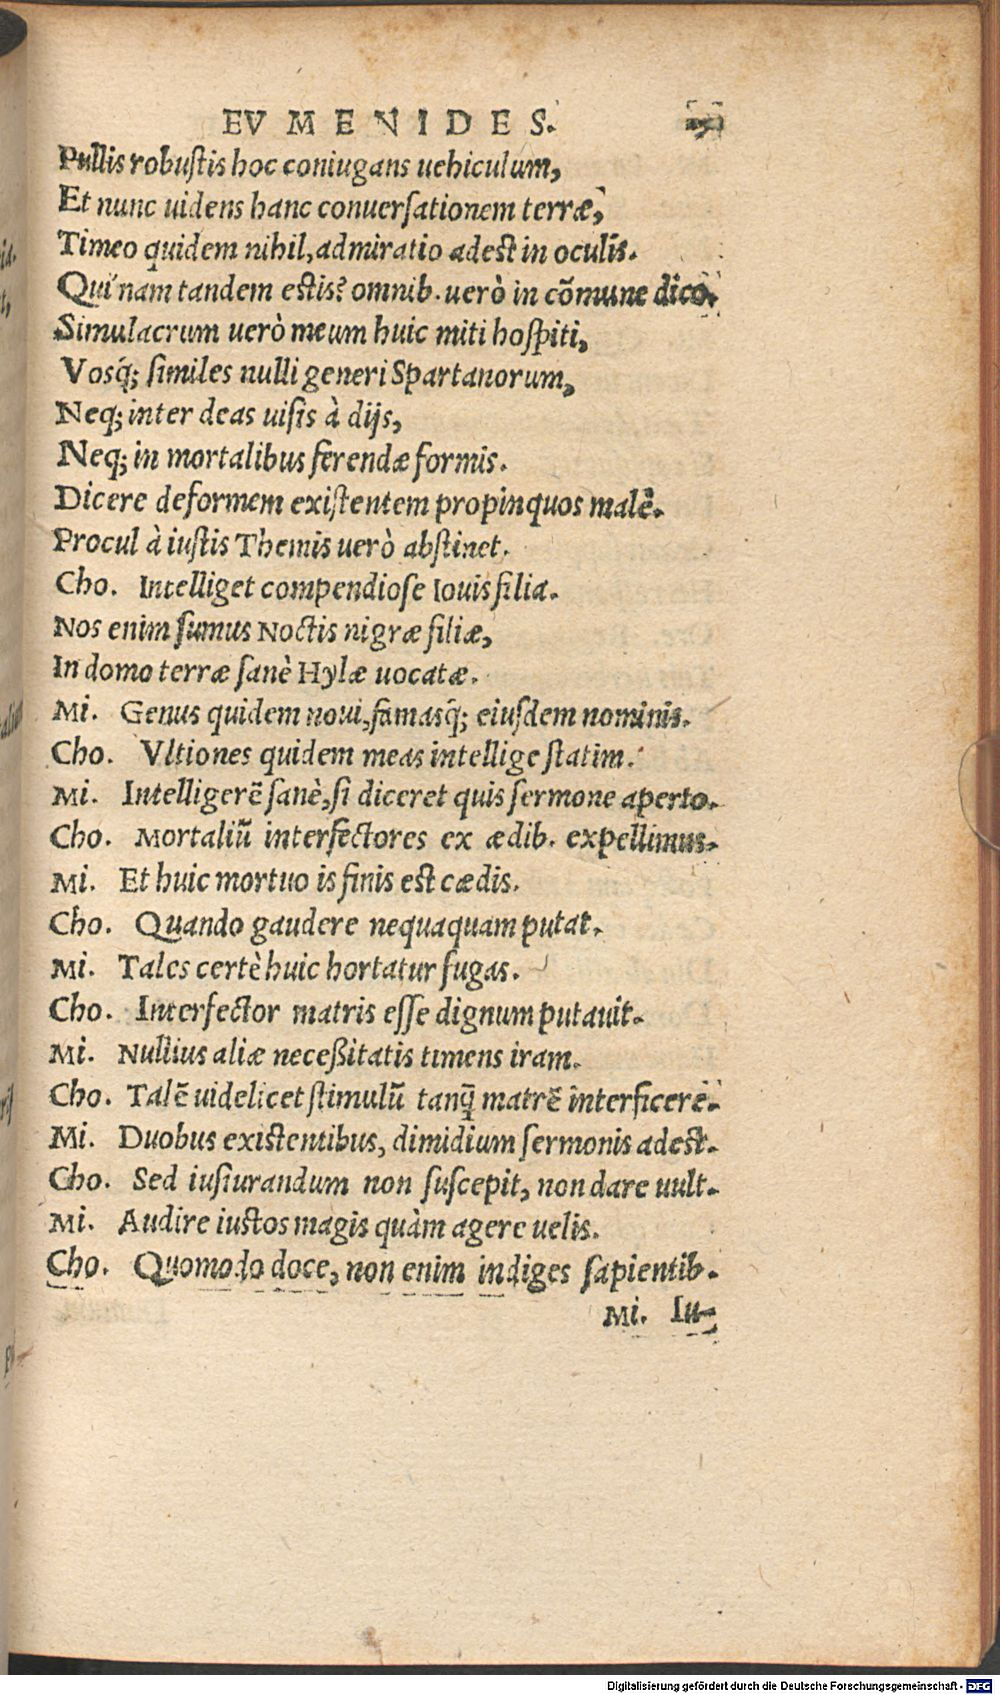 EVMENIDES.
Pullis robustis hoc coniugans uehiculum,
Et nunc uidens hanc conuersationem terræ,
Timeo quidem nihil, admiratio adest in oculis.
Qui nam tandem estis? omnib. uerò in cõmune dico,
Simulacrum uerò meum huic miti hospiti,
Vosq́; similes nulli generi Spartanorum,
Neq; inter deas uisis à dijs,
Neq; in mortalibus ferendæ formis.
Dicere deformem existentem propinquos malè.
Procul à iustis Themis uerò abstinet.
Cho. Intelliget compendiose Iouis filia.
Nos enim sumus Noctis nigræ filiæ,
In domo terræ sanè Hylæ uocatæ.
Mi. Genus quidem noui, famasq́; eiusdem nominis.
Cho. Vltiones quidem meas intellige statim.
Mi. Intelligerẽ sanè, si diceret quis sermone aperto.
Cho. Mortaliũ interfectores ex ædib. expellimus.
Mi. Et huic mortuo is finis est cædis.
Cho. Quando gaudere nequaquam putat.
Mi. Tales certè huic hortatur fugas.
Cho. Interfector matris esse dignum putauit.
Mi. Nullius aliæ neceßitatis timens iram.
Cho. Talẽ uidelicet stimulũ tanq̃ matrẽ interficerẽ.
Mi. Duobus existentibus, dimidium sermonis adest.
Cho. Sed iusiurandum non suscepit, non dare uult.
Mi. Audire iustos magis quàm agere uelis.
Cho. Quomodo doce, non enim indiges sapientib.
Mi. Iu-
Digitalisierung gefördert durch die Deutsche Forschungsgemeinschaft - DFG